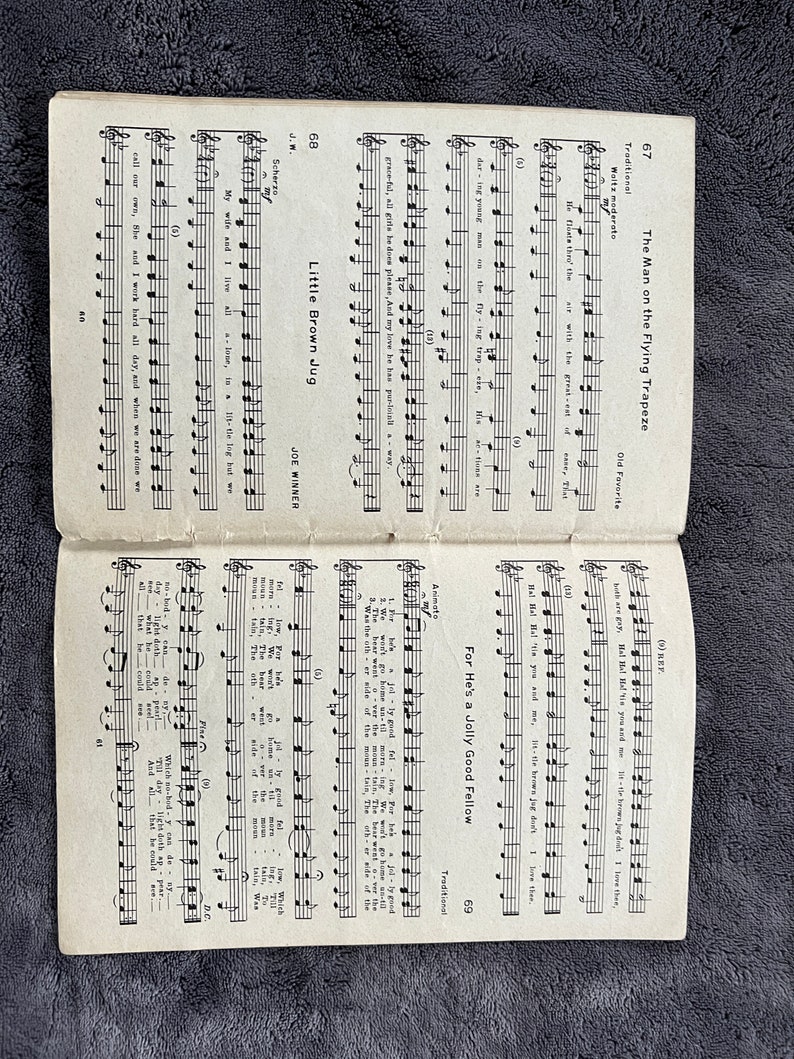 67 The Man on the Flying Trapeze
Traditional Old Favorite
Waltz moderato
mf
He floats thro' the air with the great-est of ease, That
(5) (9)
dar-ing young man on the fly-ing trap-eze, His ac-tions are
(13)
grace-ful, all girls he does please, And my love he has pur-loin'd a-way.
68 Little Brown Jug
J.W. JOE WINNER
Scherzo
mf
My wife and I live all a-lone, in a lit-tle log hut we
(5)
call our own, She and I work hard all day, and when we are done we
60
(9) REF.
both are gay, Ha! Ha! Ha! 'tis you and me lit-tle brown jug don't I love thee,
(13)
Ha! Ha! Ha! 'tis you and me, lit-tle brown jug don't I love thee.
For He's a Jolly Good Fellow 69
Traditional
Animato
mf
1. For he's a jol-ly good fel-low, For he's a jol-ly good
2. We won't go home un-til morn-ing We won't go home un-til
3. The bear went o-ver the moun-tain, The bear went o-ver the
Was the oth-er side of the moun-tain, The oth-er side of the
(5)
fel-low, For he's a jol-ly good fel-low, Which
morn-ing, We won't go home un-til morn-ing, Till
moun-tain, The bear went o-ver the moun-tain, To
moun-tain, The oth-er side of the moun-tain, Was
Fine (9) D.C.
no-bod-y can de-ny. Which no-bod-y can de-ny.
day-light doth ap-pear! 'Till day-light doth ap-pear.
see what he could see! And all that he could see.
all that he could see.
61